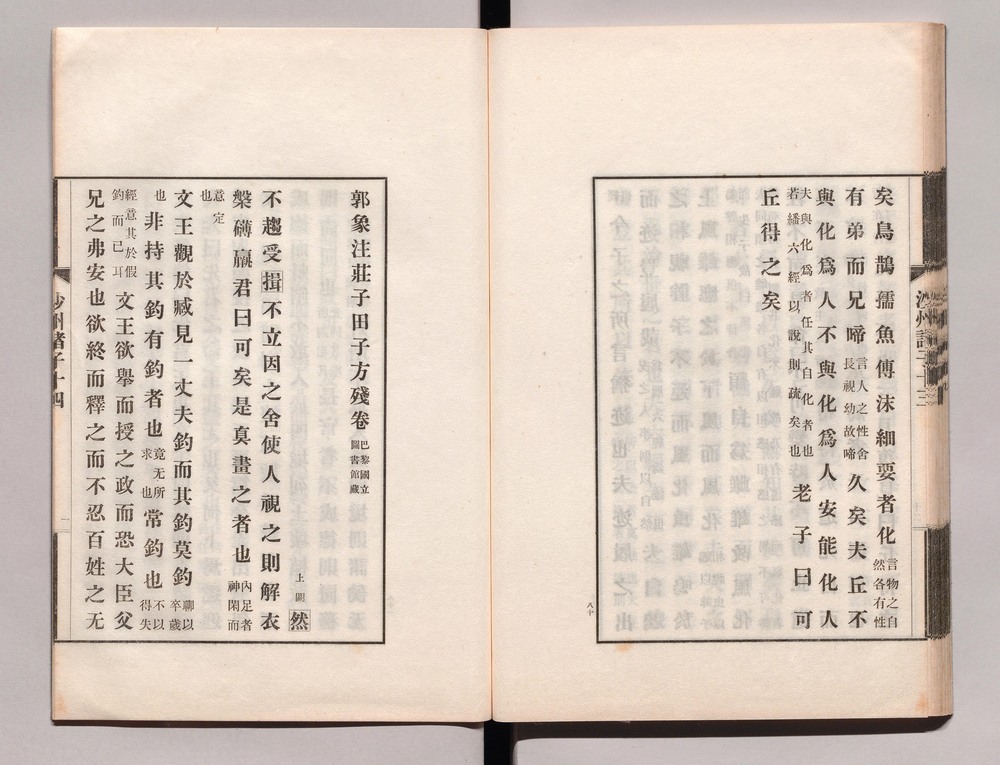 矣鳥鵲孺魚傅沫細要者化言物之自然各有性
有弟而兄啼言人之性舍長視幼故啼久矣夫丘不
與化爲人不與化爲人安能化人
夫與化爲者任其自化者也若繙六經以說則疏矣也老子曰可
丘得之矣
八十
郭象注莊子田子方殘卷巴黎國立圖書館藏
上闕然
不趨受揖不立因之舍使人視之則解衣
槃礴羸君曰可矣是真畫之者也內足者神閑而
意定也
文王觀於臧見一丈夫釣而其釣莫釣聊以卒歲
也非持其釣有釣者也竟无所求也常釣也不以得失
經意其於假釣而已耳文王欲舉而授之政而恐大臣父
兄之弗安也欲終而釋之而不忍百姓之无
沙州諸子十四
一